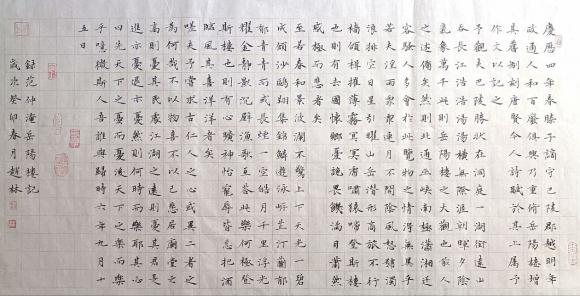 慶曆四年春滕子謫守巴陵郡越明年
政通人和百廢俱興乃重修岳陽樓增
其舊制刻唐賢今人詩賦於其上屬予
作文以記之
予觀夫巴陵勝狀在洞庭一湖銜遠山
吞長江浩浩湯湯橫無際涯朝暉夕陰
氣象萬千此則岳陽樓之大觀也前人
之述備矣然則北通巫峽南極瀟湘遷
客騷人多會於此覽物之情得無異乎
若夫淫雨霏霏連月不開陰風怒號濁
浪排空日星引耀山岳潛形商旅不行
檣傾楫摧薄暮冥冥虎嘯猿啼登斯樓
也則有去國懷鄉憂讒畏譏滿目蕭然
感極而悲者矣
至若春和景波瀾不驚上下天光一碧
萬頃沙鷗翔集錦鱗遊泳岸芷汀蘭郁
郁青青而或長煙一空皓月千里浮光
耀金靜影沉璧漁歌互答此樂何極登
斯樓也則有心曠神怡寵辱皆忘把酒
臨風其喜洋洋者矣
嗟夫予嘗求古仁人之心或異二者之
為何哉不以物喜不以己悲居廟堂之
高則憂其民處江湖之遠則憂其君是
進亦憂退亦憂然則何時而樂耶其必
曰先天下之憂而憂後天下之樂而樂
乎噫微斯人吾誰與歸時六年九月十
五日
錄范仲淹岳陽樓記
歲次癸卯春月趙林